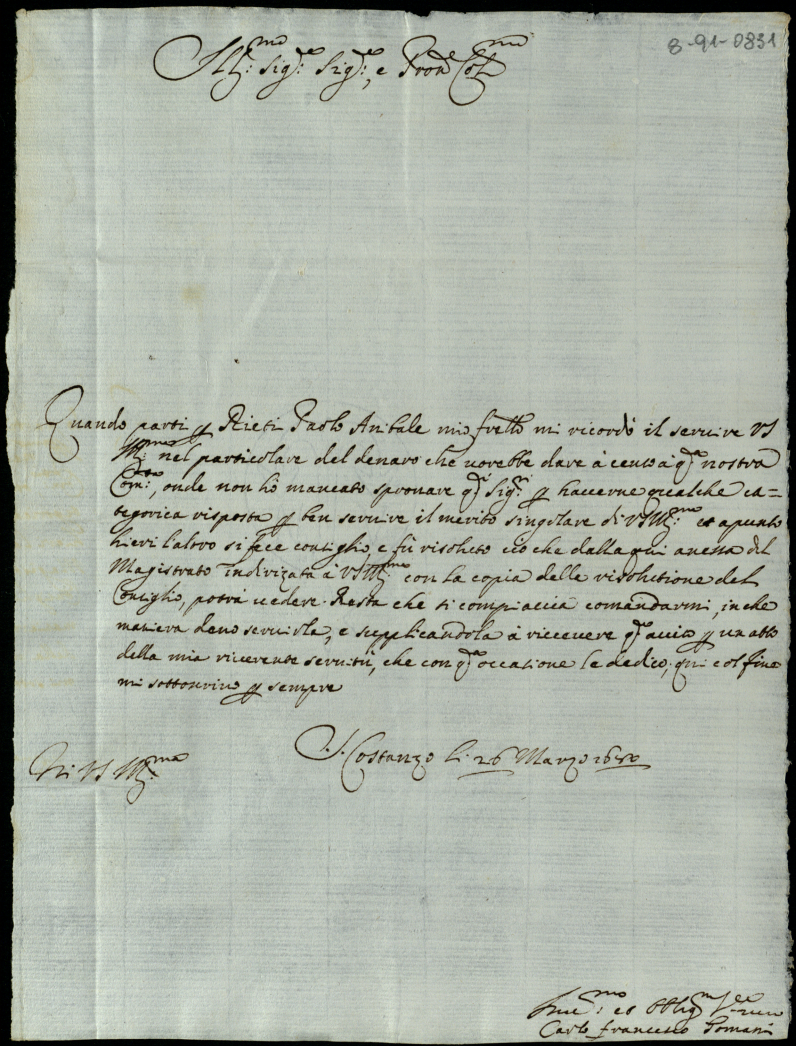 8-91-0831
Ill:mo Sig:re Sig:re, e Pron Col:mo
Quando parti p Rieti Paolo Anibale mio frello mi ricordò il seruire VS
Ill:mo nel particolare del denaro che uorebbe dare à censo à q:a nostra
Com:tà, onde non hò mancato spronare q:i Sig:ri p hauerne qualche ca=
tegorica risposta p ben seruire il merito singolare di VS Ill:ma et apunto
hieri l'altro si fece consiglio, e fù risoluto ciò che dalla qui anessa del
Magistrato indirizata à VS Ill:ma con la copia delle risolutione del
Consiglio, potrà uedere. Resta che si compiaccia comandarmi, in che
maniera deuo seruirla, e supplicandola à riceuere q:o auiso p un atto
della mia riuerente seruitù, che con q:a occasione le dedico; qui col fine
mi sottoscriuo p sempre
Di VS Ill:ma
S. Costanzo li 26 Marzo
et Obblig:mo
Carlo Francesco